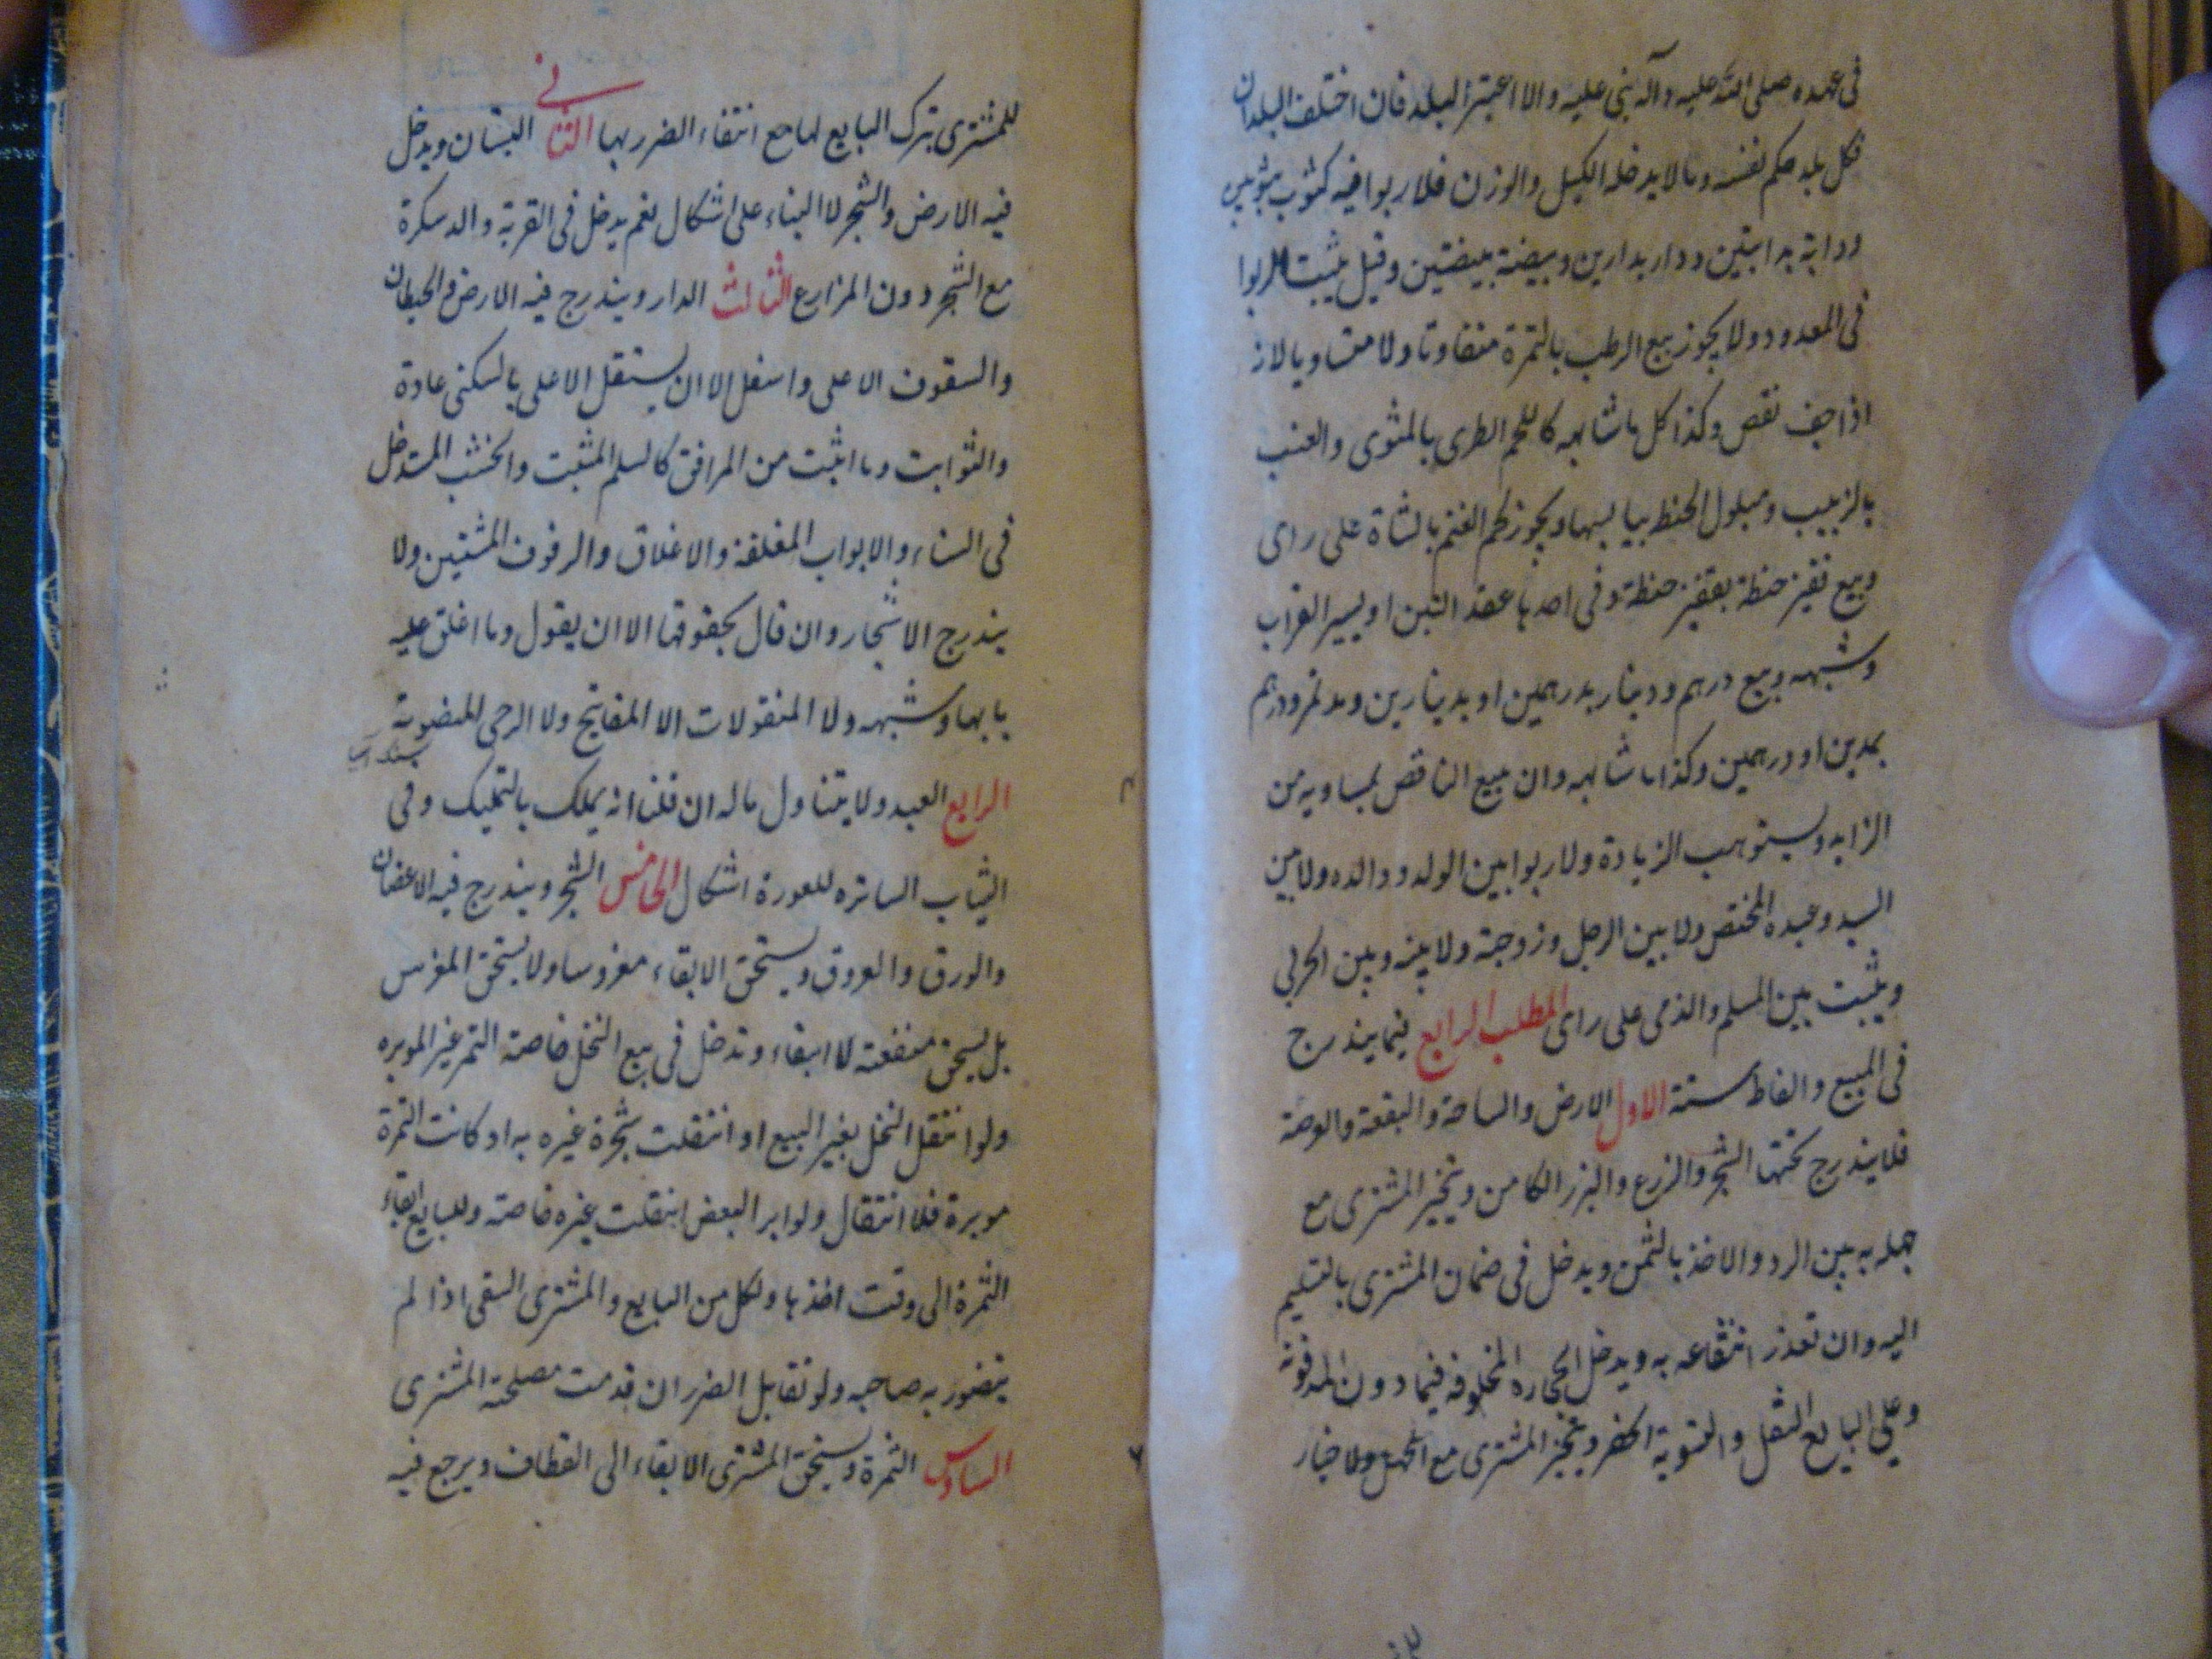 فى عهده صلى الله عليه وآله بنى عليه والا اعتبر البلد فان اختلف البلدان
فكل بلد حكم نفسه وما لا يدخله الكيل والوزن فلا ربوا فيه كثوب بثوبين
ودابة بدابتين ودار بدارين وبيضة ببيضتين وقيل يثبت الربوا
فى المعدود ولا يجوز بيع الرطب بالتمرة متفاوتا ولا متساويا لانه
اذا جف نقص وكذا كل ما شابهه كاللحم الطرى بالمشوى والعنب
بالزبيب ومبلول الحنطة بيابسها ويجوز لحم الغنم بالشاة على راى
وبيع قفيز حنطة بقفيز حنطة وفى احدها عقد التبن او يسير التراب
وشبهه وبيع درهم ودينار بدرهمين او بدينارين ومد تمر ودرهم
بمدين او درهمين وكذا ما شابهه وان يبيع الناقص بمساويه من
الزايد ويستوهب الزيادة ولا ربوا بين الولد ووالده ولا بين
السيد وعبده المختص ولا بين الرجل وزوجته ولا بينه وبين الحربى
ويثبت بين المسلم والذمى على راى المطلب الرابع فيما يندرج
فى المبيع والفاظ ستة الاول الارض والساحة والبقعة والعرصة
فلا يندرج تحتها الشجر والزرع والبزر الكامن ويتخير المشترى مع
جهله به بين الرد والاخذ بالثمن ويدخل فى ضمان المشترى بالتسليم
اليه وان تعذر انتفاعه به ويدخل الحجاره المخلوقه فيها دون المدفونة
وعلى البايع النقل والتسوية الحفر ويتخير المشترى مع الجهل ولا خيار
للمشترى بترك البايع لها مع انتفاء الضرر بها الثانى البستان ويدخل
فيه الارض والشجر لا البناء على اشكال نعم يدخل فى القرية والدسكرة
مع الشجر دون المزارع الثالث الدار ويندرج فيه الارض والحيطان
والسقوف الاعلى واسفل الا ان يستقل الاعلى بالسكنى عادة
والثوابت وما اثبت من المرافق كالسلم المثبت والخشب المستدخل
فى البناء والابواب المغلقة والاغلاق والرفوف المثبتين ولا
يندرج الاشجار وان قال بحقوقها الا ان يقول وما اغلق عليه
بابها وشبهه ولا المنقولات الا المفاتيح ولا الرحى المنصوبة
الرابع العبد ولا يتناول ماله ان قلنا انه يملك بالتمليك وفى
الثياب الساتره للعورة اشكال الخامس الشجر ويندرج فيه الاغصان
والورق والعروق ويستحق الابقاء مغروسا ولا يستحق المغرس
بل يستحق منفعته لا ابقاء وتدخل فى بيع النخل خاصة الثمر غير الموبره
ولو انتقل النخل بغير البيع او انتقلت شجرة غيره به او كانت الثمرة
موبرة فلا انتقال ولو ابر البعض انتقلت غيره خاصته وللبايع ابقاء
الثمرة الى وقت اخذها ولكل من البايع والمشترى السقى اذا لم
يتضرر به صاحبه ولو تقابل الضرر ان قدمت مصلحة المشترى
السادس الثمرة ويستحق المشترى الابقاء الى القطاف ويرجع فيه